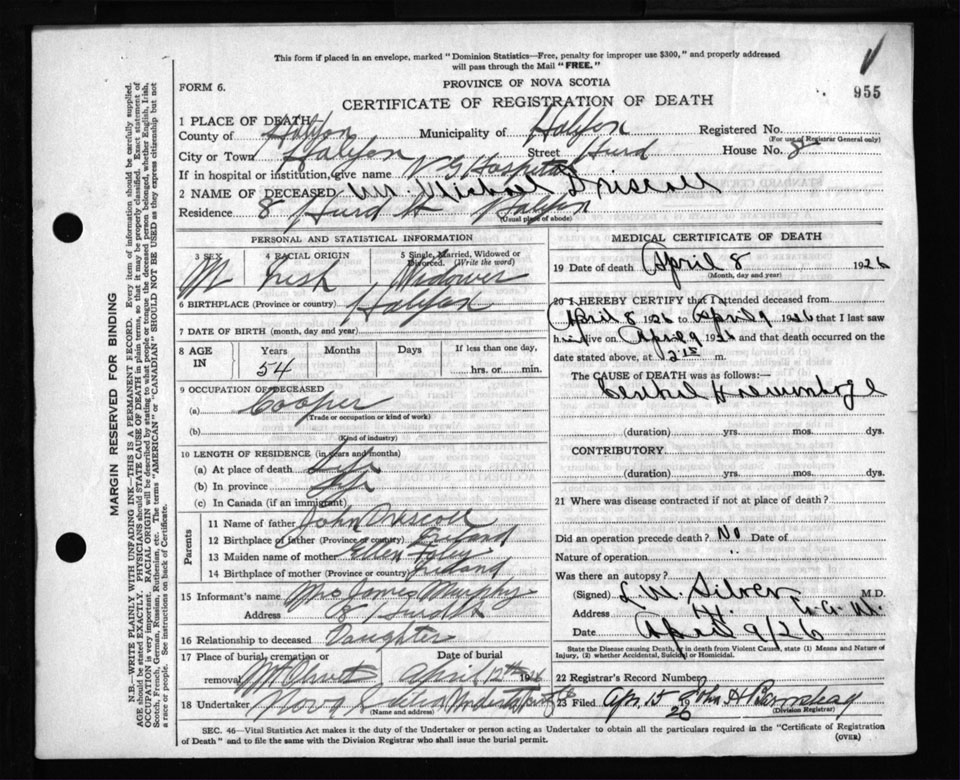 This form if placed in an envelope, marked "Dominion Statistics—Free, penalty for improper use $300," and properly addressed
will pass through the Mail "FREE."
955
FORM 6.
PROVINCE OF NOVA SCOTIA
CERTIFICATE OF REGISTRATION OF DEATH
1 PLACE OF DEATH
County of Halifax Municipality of Halifax Registered No.
(For use of Registrar General only)
City or Town Halifax Street Hurd House No. 8
If in hospital or institution, give name V G Hospital
2 NAME OF DECEASED Mr. Michael Driscoll
Residence 8 Hurd St Halifax
(Usual place of abode)
PERSONAL AND STATISTICAL INFORMATION
3 SEX 4 RACIAL ORIGIN 5 Single, Married, Widowed or Divorced. (Write the word)
M Irish Widower
6 BIRTHPLACE (Province or country) Halifax
7 DATE OF BIRTH (month, day and year)
8 AGE IN Years Months Days If less than one day,
54 hrs. or min.
9 OCCUPATION OF DECEASED
(a) Cooper
(Trade or occupation or kind of work)
(b)
(Kind of industry)
10 LENGTH OF RESIDENCE (in years and months)
(a) At place of death Life
(b) In province Life
(c) In Canada (if an immigrant)
Parents
11 Name of father John Driscoll
12 Birthplace of father (Province or country) Ireland
13 Maiden name of mother Ellen Foley
14 Birthplace of mother (Province or country) Ireland
15 Informant's name Mrs James Murphy
Address 8 Hurd St
16 Relationship to deceased Daughter
17 Place of burial, cremation or removal Mt Olivet Date of burial April 12th 1926
18 Undertaker Nova Scotia Undertaking Co
(Name and address)
MEDICAL CERTIFICATE OF DEATH
19 Date of death April 8 1926
(Month, day and year)
20 I HEREBY CERTIFY that I attended deceased from
April 8 1926 to April 9 1926 that I last saw
him alive on April 9 1926 and that death occurred on the
date stated above, at 2 15 m.
The CAUSE OF DEATH was as follows:—
Cerebral Haemorrhage
(duration) yrs. mos. dys.
CONTRIBUTORY
(duration) yrs. mos. dys.
21 Where was disease contracted if not at place of death?
Did an operation precede death? No Date of
Nature of operation "
Was there an autopsy?
(Signed) L. M. Silver M.D.
Address
Date April 9/26
State the Disease causing Death, or in death from Violent Causes, state (1) Means and Nature of
Injury, (2) whether Accidental, Suicidal or Homicidal.
22 Registrar's Record Number
23 Filed Apr. 15 1926 John H Barnstead
(Division Registrar)
SEC. 46—Vital Statistics Act makes it the duty of the Undertaker or person acting as Undertaker to obtain all the particulars required in the "Certificate of Registration
of Death" and to file the same with the Division Registrar who shall issue the burial permit.
(OVER)
MARGIN RESERVED FOR BINDING
N.B.—WRITE PLAINLY WITH UNFADING INK—THIS IS A PERMANENT RECORD. Every item of information should be carefully supplied.
AGE should be stated EXACTLY. PHYSICIANS should STATE CAUSE OF DEATH in plain terms, so that it may be properly classified. Exact statement of
OCCUPATION is very important. RACIAL ORIGIN will be described by stating to what people or tongue the deceased person belonged, whether English, Irish,
Scotch, French, German, Russian, Ruthenian, etc. The terms "AMERICAN" or "CANADIAN" SHOULD NOT BE USED as they express citizenship but not
a race or people. See instructions on back of Certificate.